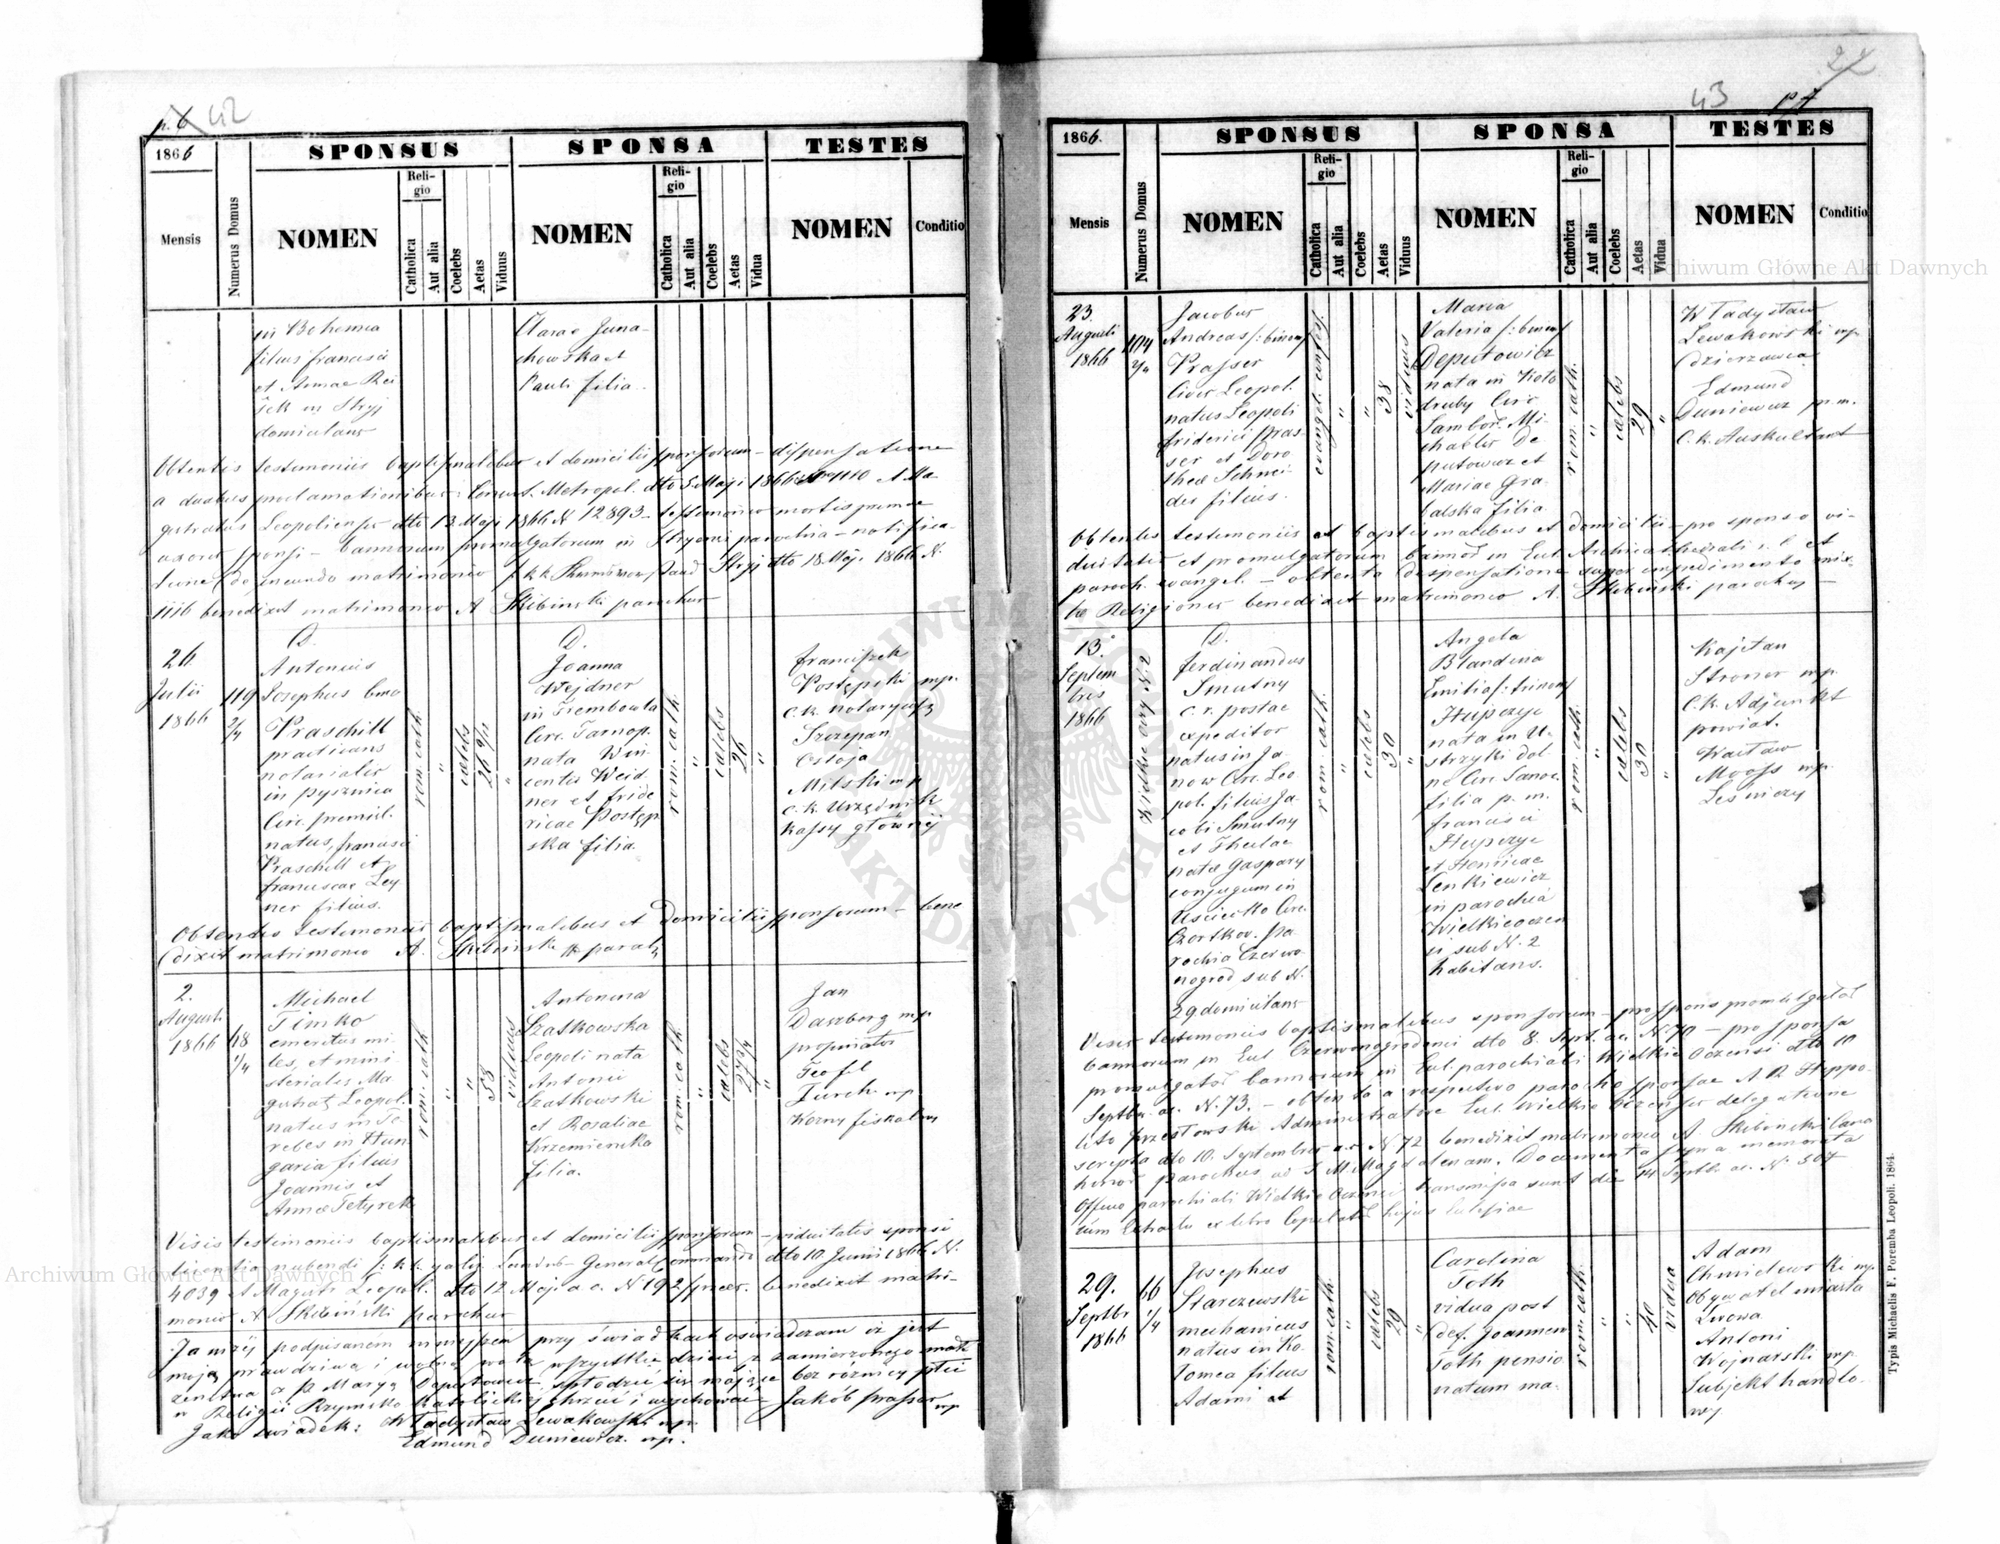 p. 6 42
1866
SPONSUS
SPONSA
TESTES
Mensis
Numerus Domus
NOMEN
Religio
Catholica
Aut alia
Coelebs
Aetas
Viduus
NOMEN
Religio
Catholica
Aut alia
Coelebs
Aetas
Vidua
NOMEN
Conditio
in Bohemia
filius francisci
et Annae
in Stryj
domicilans
Clarae Juna-
chowska et
Pauli filia.
Obtentis testimoniis baptismalibus et domicilii sponsorum – dispensatione
a duabus proclamationibus Metropol. dto 5 Maji 1866 1110 et Ma
gistratus Leopoliensis dto 13 Maji 1866 N 12893 – testimonio mortis primae
uxoris sponsi – bannorum promulgatorum in Stryensi parochia – notifica
tione de ineundo matrimonio Stryj dto 18 Maj. 1866 N.
1116 benedixit matrimonio A Skibinski parochus
26
Julii
1866
119
2/4
D.
Antonius
Josephus bino
Praschill
practicans
notarialis
in Pysznica
Circ. premisl.
natus, francisci
Praschill et
franciscae Ley
ner filius.
rom. cath.
"
caelebs
26 9/12
"
D.
Joanna
Wejdner
in Trembowla
Circ. Tarnop.
nata Win
centii Weid
ner et fride
ricae Postęp
ska filia.
rom. cath.
"
caelebs
26
"
franciszek
Postępski mp.
c.k. notaryusz
Szczepan
Ostoja
Milski mp
c.k. Urzędnik
kassy głównej
Obtentis testimoniis baptismalibus et domicilii sponsorum – bene
dixit matrimonio A. Skibinski parochus
2.
Augusti
1866
68
1/4
Michael
Timko
emeritus mi-
les, et mini
sterialis Ma
gistrats Leopol.
natus in Te
reles in Hun
garia filius
Joannis et
Annae Tetyrek
rom. cath
"
"
53
viduus
Antonina
Szatkowska
Leopoli nata
Antonii
Szatkowski
et Rosaliae
Krzemienska
filia.
rom. cath.
"
caelebs
27 3/4
"
Jan
Daszborg mp
propinator
Teofil
Turch mp
Visis testimoniis baptismalibus et domicilii sponsorum – viduitatis sponsi
licentia nubendi k.k. galiz. General Commando dto 10 Junii 1866 N.
4039 et Magistr. Leopol. dto 12 Maji a c. N 192 benedixit matri-
monio A Skibiński parochus
Ja niżej podpisanem przy świadkach oświadczam iż jest
moją prawdziwą i wolną wolą wszystkie dzieci z zamierzonego mał
żeństwa a P. Maryą Deputowicz spłodzić się mające bez różnicy płci
w Religii Rzymsko Katolickiej chrzcić i wychować Jakób Prasser mp
Jako świadek: Władysław Lewakowski mp.
Edmund Duniewicz mp.
43 p 7
1866.
SPONSUS
SPONSA
TESTES
Mensis
Numerus Domus
NOMEN
Religio
Catholica
Aut alia
Coelebs
Aetas
Viduus
NOMEN
Religio
Catholica
Aut alia
Coelebs
Aetas
Vidua
NOMEN
Conditio
23.
Augusti
1866
104
2/4
Jacobus
Andreas /: binom/
Prasser
Civis Leopol.
natus Leopoli
friderici Pras-
ser et Doro
theae Schnei-
der filius.
evangel. confes.
"
"
38
viduus
Maria
Valeria /: binom/
Deputowicz
nata in Koło
druby Circ.
Sambor. Mi-
chaelis De
putowicz et
Mariae Gra-
balska filia
rom. cath.
"
caelebs
29
"
Władysław
Lewakowski mp.
Dzierzawca
Edmund
Duniewicz m.
C.k. Auskultant
Obtentis testimoniis baptismalibus et domicilii – pro sponso vi-
duitatis et promulgatorum bannor. in Eccl. Archicathedrali r. l. et
paroch. evangel. – obtenta dispensatione super impedimento mix-
tae Religionis benedixit matrimonio A. Skibiński parochus –
13.
Septem
bris
1866
Wielkie oczy N. 2
D.
Ferdinandus
Smutny
c. r. postae
expeditor
natus in Ja
now Circ. Leo
pol. filius Ja-
cobi Smutny
et Theclae
natae Gaspary
conjugum in
Uściecko Circ.
Czortkov. pa
rochia Czerwo
nogrod sub N.
29 domicilans
rom. cath.
"
caelebs
30
"
Angela
Blandina
Emilia /: trinom/
Hupczyc
nata in U-
strzyki dol-
ne Circ. Sanoc.
filia p. m.
francisci
Hupczyc
et Henricae
Lenkiewicz
in parochia
Wielkieoczen
si sub N. 2
habitans.
rom. cath.
"
caelebs
30
"
Kajetan
Stroner mp.
C.k. Adjunkt
powiat.
Wacław
Mooss mp.
Leśniczy
Visis testimoniis baptismalibus sponsorum – pro sponso promulgator.
bannorum in Eccl. Czerwonogrodensi dto 8. Sept. ac. N. 70 – pro sponsa
promulgator. bannorum in Eccl. parochiali Wielkie Oczensi dto 10
Septbr. ac. N. 73. – obtenta a respectivo parocho sponsae A. R. Hyppo-
lito Przestowski Administratore Eccl. Wielkie Oczensis delegatione
scripta dto 10. Septembris a.c. N 72 benedixit matrimonio A. Skibiński Cano
parochus ad S. M. Magdalenam. Documenta memorata
Officio parochiali Wielkie Oczensi transmissa sunt die 14 Septbr. ac. N. 507
cum Extractu ex libro Copulator. hujus Ecclesiae
29.
Septbr
1866
66
1/4
Josephus
Starczewski
mechanicus
natus in Ko-
lomea filius
Adami et
rom. cath.
"
caelebs
29
"
Carolina
Toth
vidua post
def. Joannem
Toth pensio
natum ma-
rom. cath.
"
"
40
vidua
Adam
Chmielewski mp.
Obywatel miasta
Lwowa
Antoni
Wojnarski mp.
Subjekt handlo-
wy
Typis Michaelis F. Poremba Leopoli. 1864.
Archiwum Główne Akt Dawnych
Archiwum Główne Akt Dawnych
ARCHIWUM GŁÓWNE AKT DAWNYCH